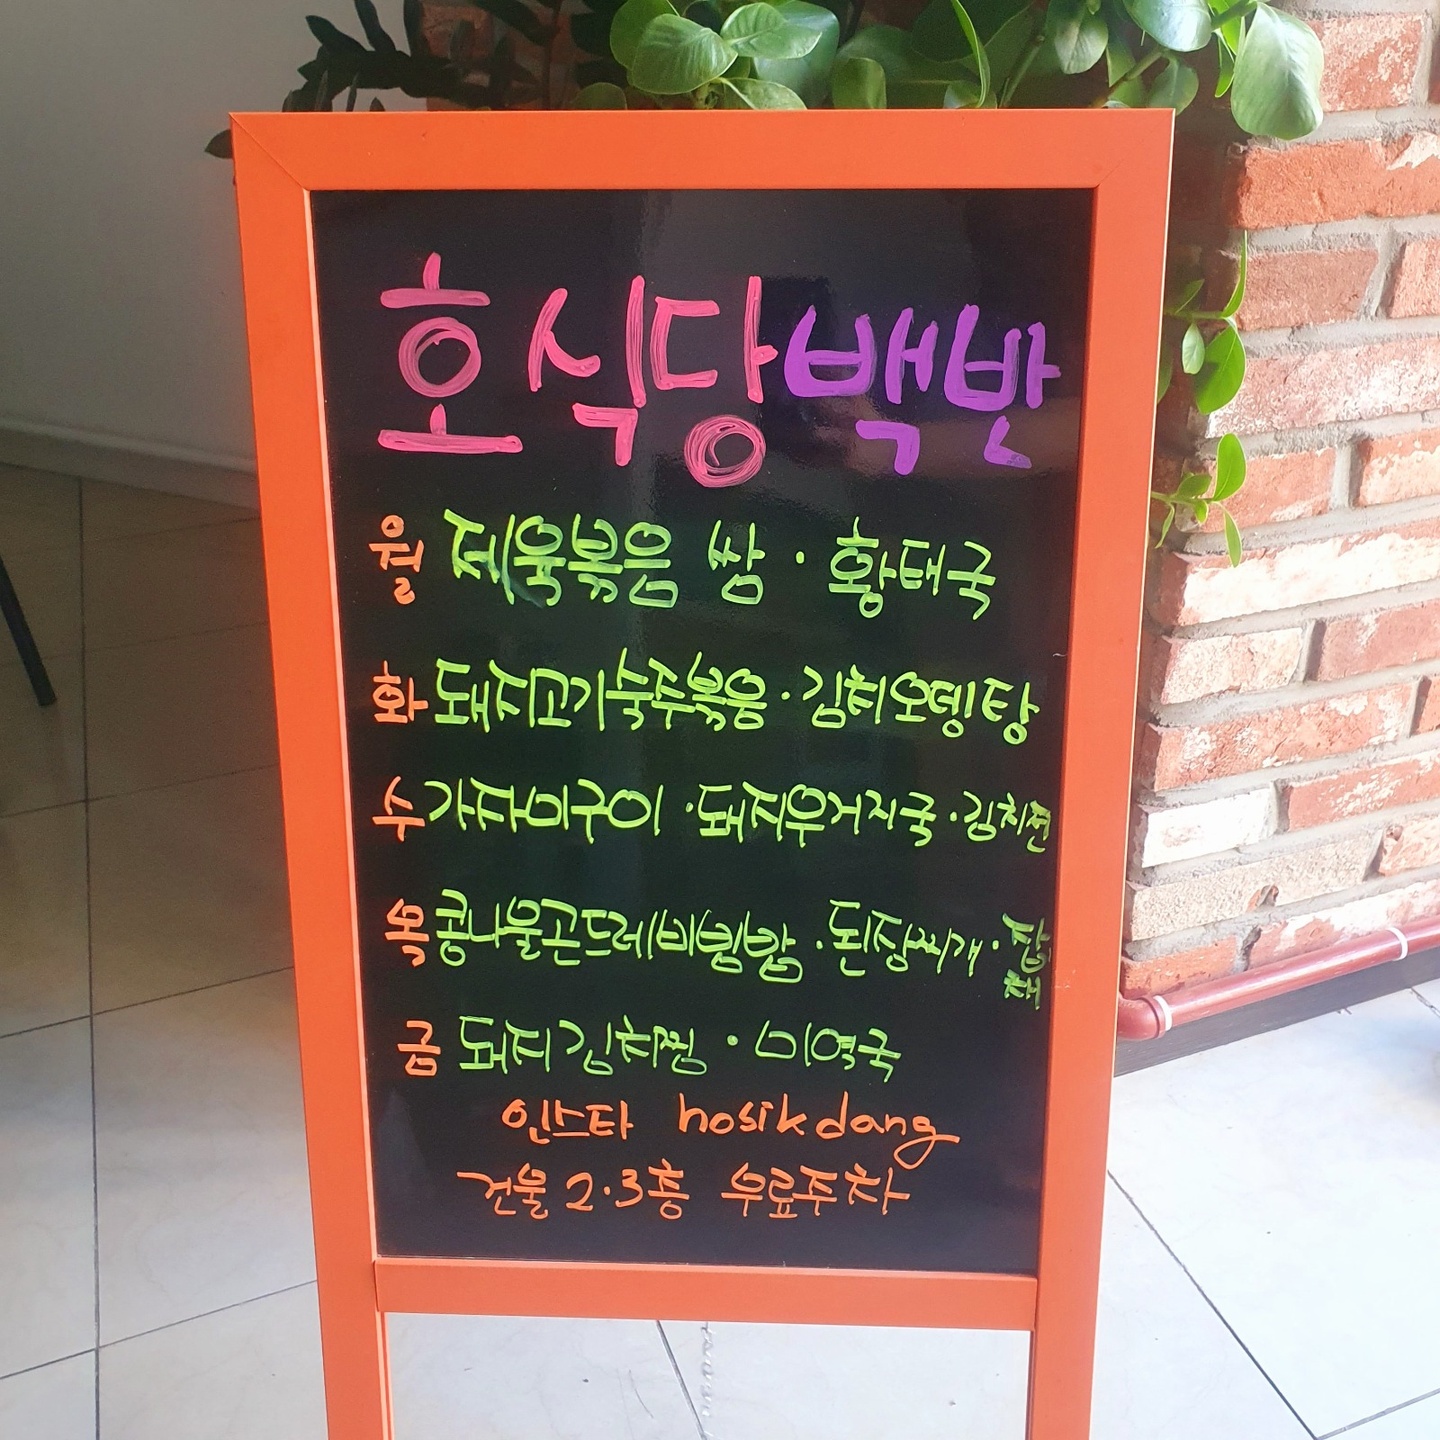 호식당백반
월 제육볶음 쌈 · 황태국
화 돼지고기숙주볶음 · 김치오뎅탕
수 가자미구이 · 돼지우거지국 · 김치전
목 콩나물곤드레비빔밥 · 된장찌개 · 잡채
금 돼지김치찜 · 미역국
인스타 hosikdang
건물 2·3층 무료주차